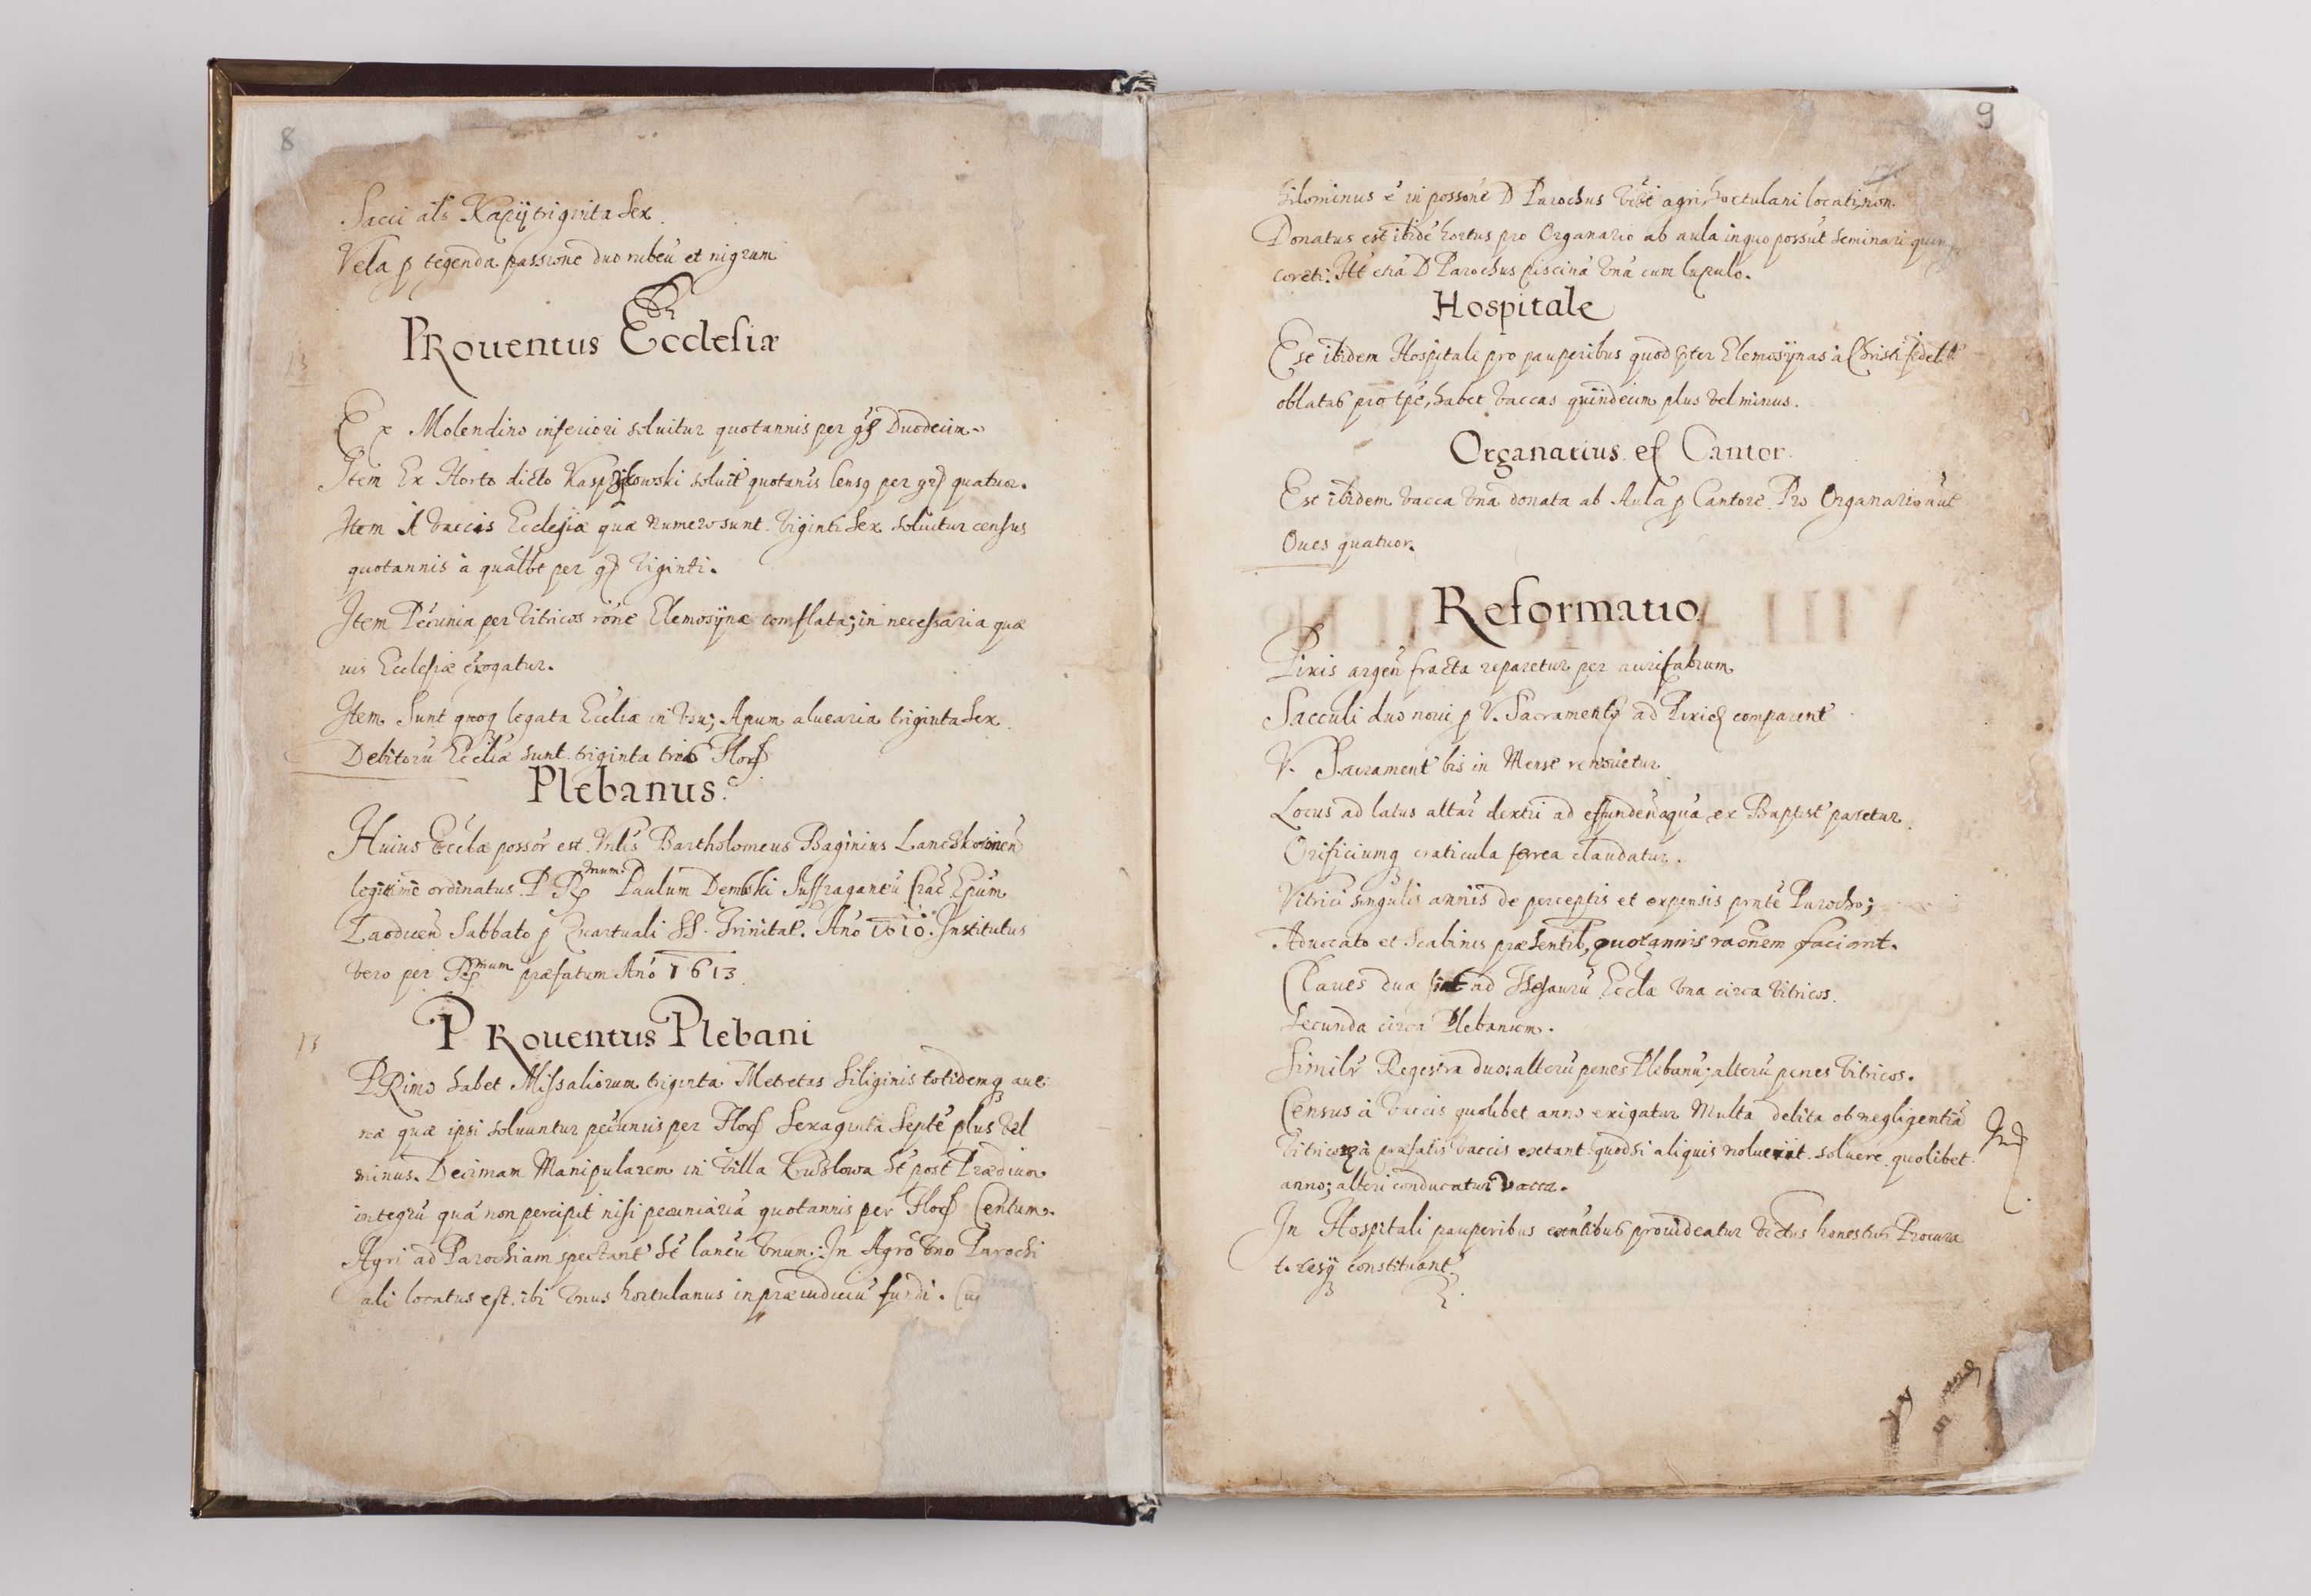 8
Sacci als Kapy triginta sex.
Vela p tegenda passione duo rubeū et nigrum
PRouentus Ecclesiæ
Ex Molendino inferiori soluitur quotannis per gs Duodecim.
Item Ex Horto dicto soluit quotanis Censq per gs quatuor.
Item A vaccis Ecclesiæ quæ numero sunt viginti sex soluitur census
quotannis à qualbt per gs viginti.
Item Pecunia per Vitricos rōne Elemosynæ conflata; in necessaria quæ
uis Ecclesiæ erogatur.
Item Sunt quoq legata Eccliæ in vsu; Apum aluearia triginta sex.
Debitorū Eccliæ sunt triginta tria Flor
Plebanus.
Huius Ecclæ possor est Vnlis Bartholomeus Baginius Lanckoronen
legitime ordinatus P R num Paulum Dembski Suffraganeū Crac Epum
Laodicen Sabbato p Quartuali SS. Trinitat. Año 1610. Institutus
vero per R mum præfatum Año 1613.
PRouentus Plebani
PRimo habet Missaliorum triginta Metretas siliginis totidemq aue
næ quæ ipsi soluuntur pecunijs per Flor Sexaginta Septē plus vel
minus. Decimam Manipularem in villa ht post Prædium
integrū quā non percipit nisi pecuniariā quotannis per Flor Centum.
Agri ad Parochiam spectant ht laneū vnum: In Agro vno Parochi
ali locatus est ibi vnus hortulanus in præiudiciū fundi.
9
hilominus ē in possone D Parochus agri hortulani locati non.
Donatus est ibidē hortus pro Organario ab aula in quo possūt seminari
coreti: Ht etiā D Parochus piscinā vnā cum lupulo.
Hospitale
Est ibidem Hospitale pro pauperibus quod pter Elemosynas à Christi fidelib
oblatas pro tpe, habet vaccas quindecim plus vel minus.
Organarius et Cantor.
Est ibidem vacca vna donata ab Aula p Cantore. Pro Organario aut
Oues quatuor.
Reformatio.
Pixis argen fracta reparetur per aurifabrum
Sacculi duo noui p V. Sacramento ad comparent
V. Sacrament bis in Mense renouetur.
Locus ad latus altar dextri ad effunden aquā ex Baptist paretur.
Orificiumq craticula ferrea claudatur.
Vitrici singulis annis de perceptis et expensis pnte Parocho;
Aduocato et Scabinis præsentib, quotannis raonem faciant.
Claues duæ sint ad Thesaurū Ecclæ vna circa vitricos.
Secunda circa Plebanum.
Similr Regestra duo: alterū penes Plebanū; alterū penes Vitricos.
Census à vaccis quolibet anno exigatur Multa debita ob negligentiā
Vitricorū à præfatis vaccis extant quodsi aliquis noluerit soluere quolibet
anno; alteri conducatur vacca.
In Hospitali pauperibus prouideatur victus honestus Procura
toresq constituant.